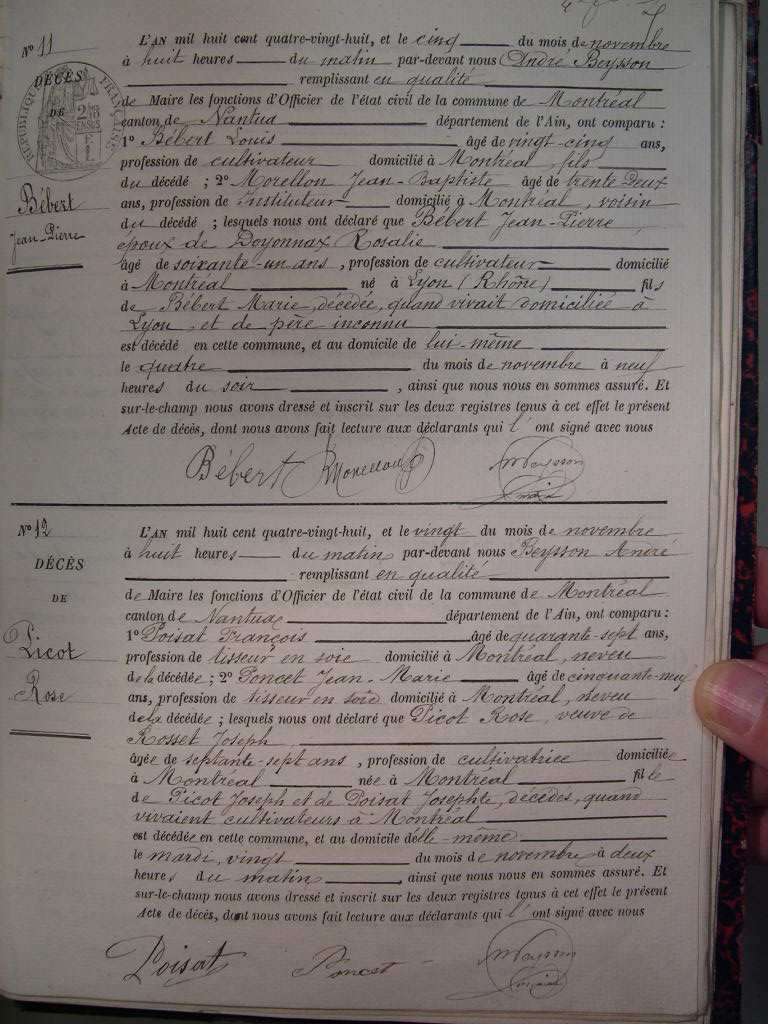 N° 11
DÉCÈS
DE
RÉPUBLIQUE FRANÇAISE
Bébert
Jean-Pierre
L'AN mil huit cent quatre-vingt-huit, et le cinq du mois de novembre
à huit heures du matin par-devant nous André Beysson
remplissant en qualité
de Maire les fonctions d'Officier de l'état civil de la commune de Montréal
canton de Nantua département de l'Ain, ont comparu :
1° Bébert Louis âgé de vingt-cinq ans,
profession de cultivateur domicilié à Montréal, fils
du décédé ; 2° Morellon Jean-Baptiste âgé de trente Deux
ans, profession de instituteur domicilié à Montréal, voisin
du décédé ; lesquels nous ont déclaré que Bébert Jean-Pierre,
époux de Doyonnax Rosalie
âgé de soixante-un ans, profession de cultivateur domicilié
à Montréal né à Lyon (Rhône) fils
de Bébert Marie, décédée, quand vivait domiciliée à
Lyon, et de père inconnu
est décédé en cette commune, et au domicile de lui-même
le quatre du mois de novembre à neuf
heures du soir, ainsi que nous nous en sommes assuré. Et
sur-le-champ nous avons dressé et inscrit sur les deux registres tenus à cet effet le présent
Acte de décès, dont nous avons fait lecture aux déclarants qui l'ont signé avec nous
Bébert Morellon
N° 12
DÉCÈS
DE
Picot
Rose
L'AN mil huit cent quatre-vingt-huit, et le vingt du mois de novembre
à huit heures du matin par-devant nous Beysson André
remplissant en qualité
de Maire les fonctions d'Officier de l'état civil de la commune de Montréal
canton de Nantua département de l'Ain, ont comparu :
1° Poisat François âgé de quarante-sept ans,
profession de tisseur en soie domicilié à Montréal, neveu
de la décédée ; 2° Poncet Jean-Marie âgé de cinquante-neuf
ans, profession de tisseur en soie domicilié à Montréal, neveu
de la décédée ; lesquels nous ont déclaré que Picot Rose, veuve de
Rosset Joseph
âgée de septante-sept ans, profession de cultivatrice domiciliée
à Montréal née à Montréal fille
de Picot Joseph et de Poisat Josephte, décédés, quand
vivaient cultivateurs à Montréal
est décédée en cette commune, et au domicile delle-même
le mardi, vingt du mois de novembre à deux
heures du matin, ainsi que nous nous en sommes assuré. Et
sur-le-champ nous avons dressé et inscrit sur les deux registres tenus à cet effet le présent
Acte de décès, dont nous avons fait lecture aux déclarants qui l'ont signé avec nous
Poisat Poncet